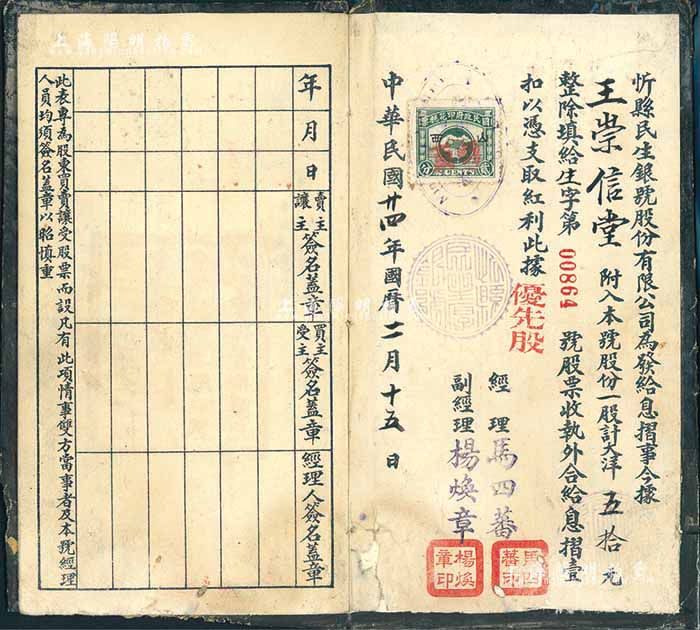 忻縣民生銀號股份有限公司為發給息摺事今據
王崇信堂 附入本號股份一股計大洋 五拾元
整除填給生字第 00864 號股票收執外合給息摺壹
扣以憑支取紅利此據
優先股
經理 馬四蕃
副經理 楊煥章
馬四蕃印
楊煥章印
中華民國廿四年國曆二月十五日
國民政府印花稅票
山西
CENTS
年月日
賣主讓主簽名蓋章
買主受主簽名蓋章
經理人簽名蓋章
此表專為股東買賣讓受股票而設凡有此項情事雙方當事者及本號經理
人員均須簽名蓋章以昭慎重
上海陽明拍賣